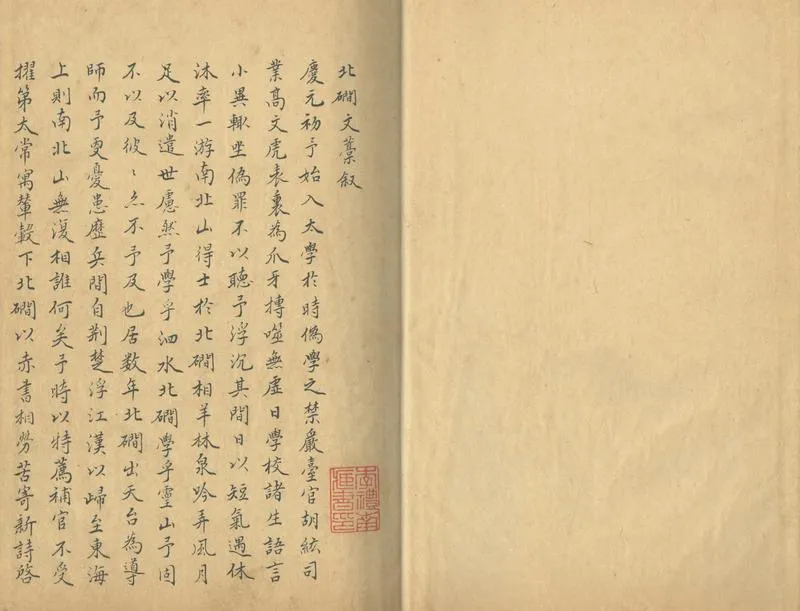 北磵文藁叙
慶元初予始入太學於時偽學之禁嚴臺官胡紘司
業高文虎表裏為爪牙摶噬無虛日學校諸生語言
小異輒坐偽罪不以聽予浮沉其間日以短氣遇休
沐率一游南北山得士於北磵相羊林泉吟弄風月
足以消遣世慮然予學乎泗水北磵學乎霊山予固
不以及彼〻亦不予及也居数年北磵出天台為導
師而予更憂患歷兵間自荆楚浮江漢以歸至東海
上則南北山無復相誰何矣予時以特薦補官不受
擢第太常寓輦轂下北磵以赤書相勞苦寄新詩啓
李禮南
藏書印